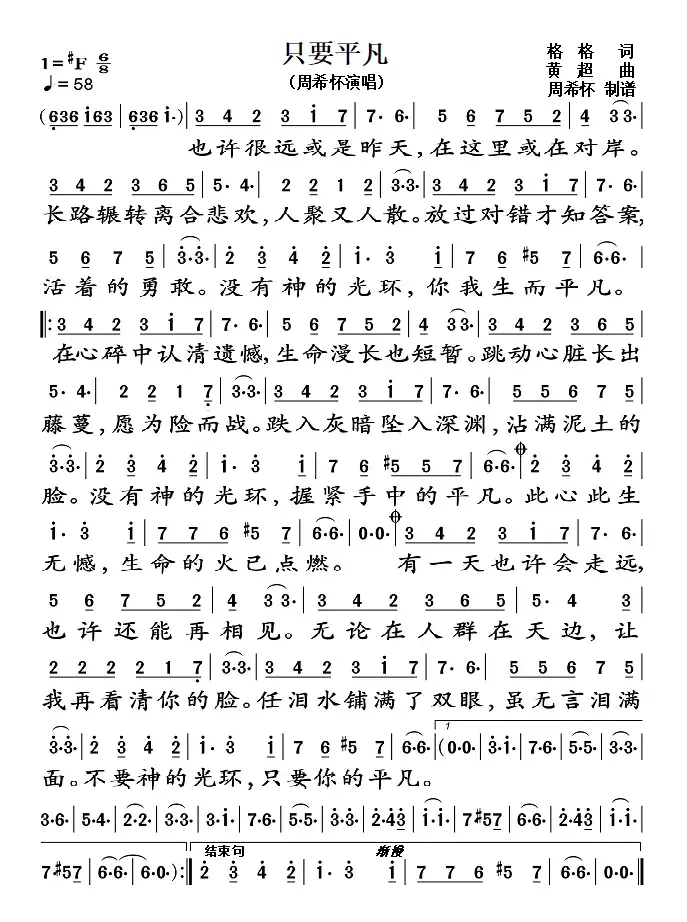 只要平凡
(周希怀演唱)
1=#F 6/8
♩=58
格 格 词
黄 超 曲
周希怀 制谱
(636 i63 | 636 i·) | 3 4 2 3 i 7 | 7· 6· | 5 6 7 5 2 | 4 3 3·
也许很远或是昨天,在这里或在对岸。
3 4 2 3 6 5 | 5· 4· | 2 2 1 2 | 3·3· | 3 4 2 3 i 7 | 7· 6·
长路辗转离合悲欢,人聚又人散。放过对错才知答案,
5 6 7 5 | 3·3· | 2 3 4 2 | i· 3 i | 7 6 #5 7 | 6·6·
活着的勇敢。没有神的光环,你我生而平凡。
‖: 3 4 2 3 i 7 | 7· 6· | 5 6 7 5 2 | 4 3 3· | 3 4 2 3 6 5
在心碎中认清遗憾,生命漫长也短暂。跳动心脏长出
5· 4· | 2 2 1 7 | 3·3· | 3 4 2 3 i 7 | 7· 6· | 5 5 6 7 5
藤蔓,愿为险而战。跌入灰暗坠入深渊,沾满泥土的
3·3· | 2 3 4 2 | i· 3 i | 7 6 #5 5 7 | 6·6· | 2 3 4 2
脸。没有神的光环,握紧手中的平凡。此心此生
i· 3 i | 7 7 6 #5 7 | 6·6· | 0·0· | 3 4 2 3 i 7 | 7· 6·
无憾,生命的火已点燃。 有一天也许会走远,
5 6 7 5 2 | 4 3 3· | 3 4 2 3 6 5 | 5 4 3
也许还能再相见。无论在人群在天边,让
2 2 2 2 1 7 | 3·3· | 3 4 2 3 i 7 | 7· 6· | 5 5 6 7 5
我再看清你的脸。任泪水铺满了双眼,虽无言泪满
3·3· | 2 3 4 2 | i· 3 i | 7 6 #5 7 | 6·6· | (0·0· | 3·i· | 7·6· | 5·5· | 3·3·
1
面。不要神的光环,只要你的平凡。
3·6· | 5·4· | 2·2· | 3·3· | 3·i· | 7·6· | 5·3· | 2·43 | i·i· | 7#57 | 6·6· | 2·43 | i·i·
结束句 渐慢
7#57 | 6·6· | 6·0·) :‖ 2 3 4 2 | i· 3 i | 7 6 #5 7 | 6·6· | 6·0· ‖